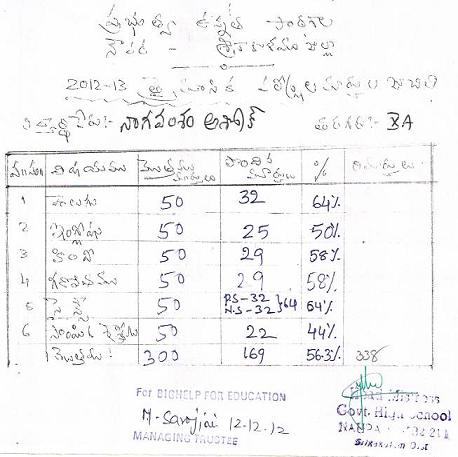 ప్రభుత్వ ఉన్నత పాఠశాల
శ్రీకాకుళము జిల్లా
2012-13 త్రైమాసిక పరీక్షల మార్కుల జాబితా
విద్యార్థి పేరు:- నాగవంశం అశోక్ తరగతి:- X A
విషయము మొత్తము మార్కులు పొందిన మార్కులు % రిమార్కులు
1 తెలుగు 50 32 64%
2 ఇంగ్లీషు 50 25 50%
3 హిందీ 50 29 58%
4 గణితము 50 29 58%
5 సైన్స్ 50 P.S-32 N.S-32 }64 64%
6 సాంఘిక 50 22 44%
మొత్తము: 300 169 56.3% 338
For BIGHELP FOR EDUCATION
M. Sarojini 12-12-12
MANAGING TRUSTEE
Head Mistress
Govt. High School
Srikakulam Dist